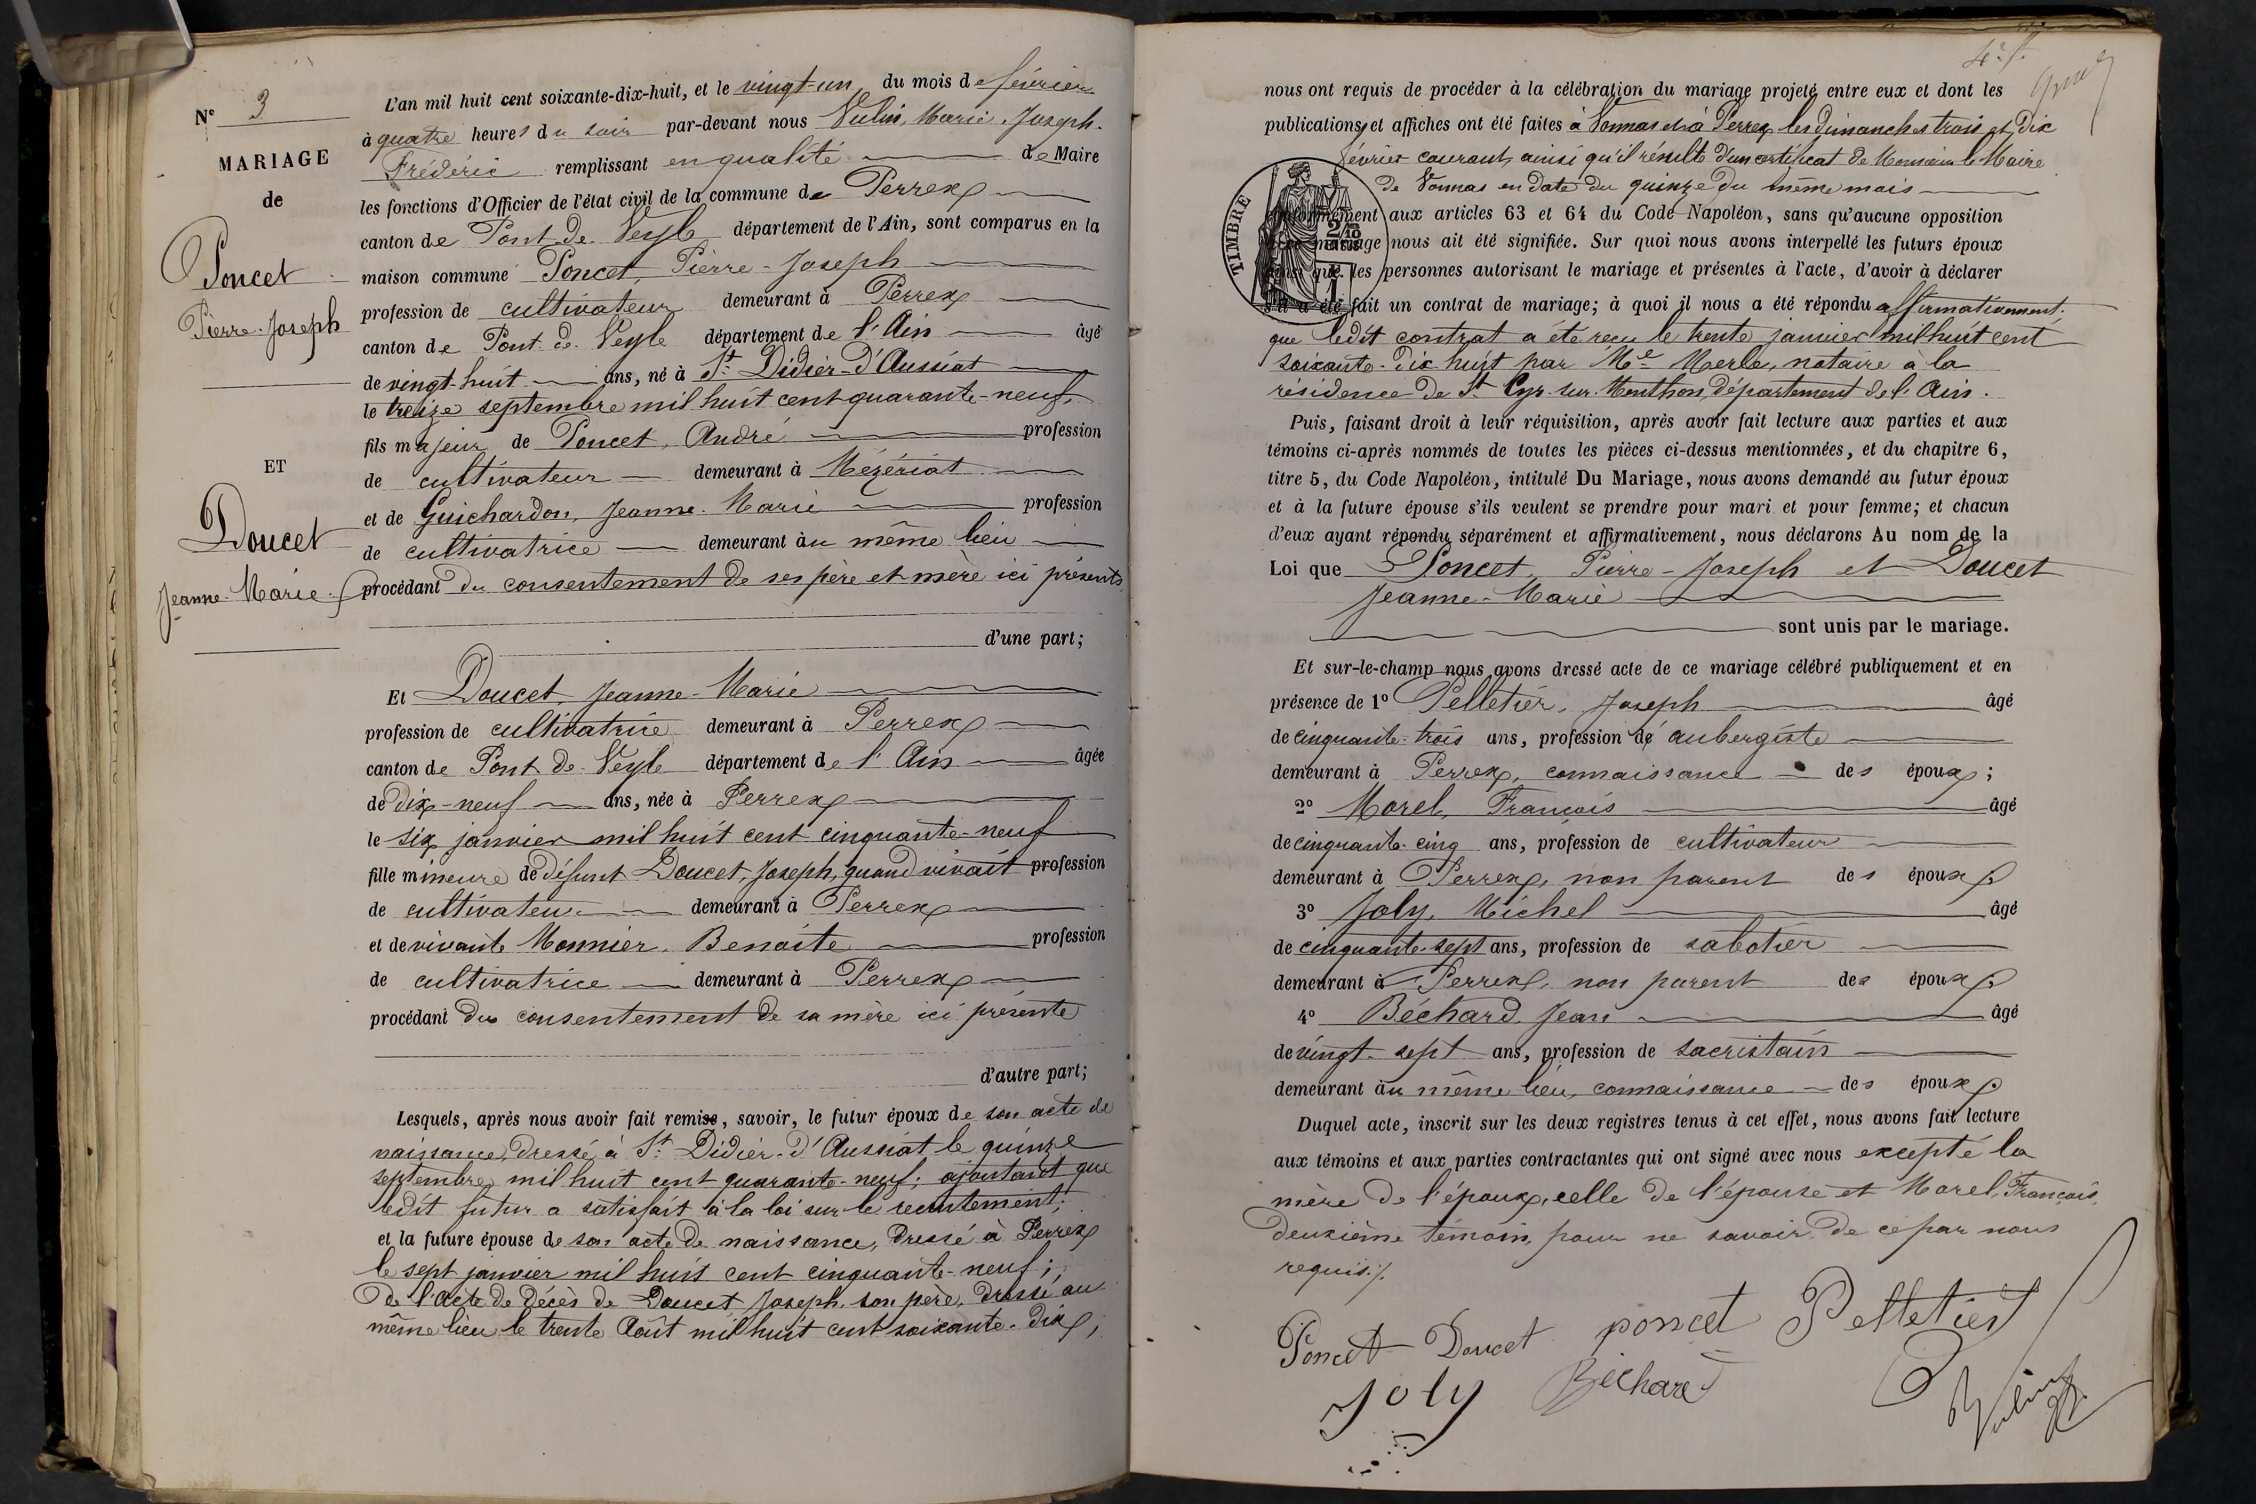 N° 3
MARIAGE
de
Poncet
Pierre-Joseph
ET
Doucet
Jeanne-Marie
L'an mil huit cent soixante-dix-huit, et le vingt-un du mois de février
à quatre heures du soir par-devant nous Vulin, Marie-Joseph-
Frédéric remplissant en qualité de Maire
les fonctions d'Officier de l'état civil de la commune de Perrex
canton de Pont-de-Veyle département de l'Ain, sont comparus en la
maison commune Poncet, Pierre-Joseph
profession de cultivateur demeurant à Perrex
canton de Pont-de-Veyle département de l'Ain âgé
de vingt-huit ans, né à St Didier-d'Aussiat
le treize septembre mil huit cent quarante-neuf,
fils majeur de Poncet, André profession
de cultivateur demeurant à Mézériat
et de Guichardon, Jeanne-Marie profession
de cultivatrice demeurant au même lieu
procédant du consentement de ses père et mère ici présents,
d'une part;
Et Doucet, Jeanne-Marie
profession de cultivatrice demeurant à Perrex
canton de Pont-de-Veyle département de l'Ain âgée
de dix-neuf ans, née à Perrex
le six janvier mil huit cent cinquante-neuf
fille mineure de défunt Doucet, Joseph, quand vivait profession
de cultivateur demeurant à Perrex
et de vivante Monnier, Benoite profession
de cultivatrice demeurant à Perrex
procédant du consentement de sa mère ici présente
d'autre part;
Lesquels, après nous avoir fait remise, savoir, le futur époux de son acte de
naissance, dressé à St Didier-d'Aussiat le quinze
septembre mil huit cent quarante-neuf; ajoutant que
ledit futur a satisfait à la loi sur le recrutement;
et la future épouse de son acte de naissance, dressé à Perrex
le sept janvier mil huit cent cinquante-neuf;
De l'acte de décès de Doucet Joseph, son père, dressé au
même lieu le trente Août mil huit cent soixante-dix;
4e f.
nous ont requis de procéder à la célébration du mariage projeté entre eux et dont les
publications et affiches ont été faites à Vonnas et à Perrex les dimanches trois et dix
février courant, ainsi qu'il résulte d'un certificat de Monsieur le Maire
de Vonnas en date du quinze du même mois
TIMBRE
2/10
conformément aux articles 63 et 64 du Code Napoléon, sans qu'aucune opposition
mariage nous ait été signifiée. Sur quoi nous avons interpellé les futurs époux
ainsi que les personnes autorisant le mariage et présentes à l'acte, d'avoir à déclarer
s'il a été fait un contrat de mariage; à quoi il nous a été répondu affirmativement;
que ledit contrat a été reçu le trente janvier mil huit cent
soixante-dix huit par Me Merle, notaire à la
résidence de St Cyr-sur-Menthon, département de l'Ain.
Puis, faisant droit à leur réquisition, après avoir fait lecture aux parties et aux
témoins ci-après nommés de toutes les pièces ci-dessus mentionnées, et du chapitre 6,
titre 5, du Code Napoléon, intitulé Du Mariage, nous avons demandé au futur époux
et à la future épouse s'ils veulent se prendre pour mari et pour femme; et chacun
d'eux ayant répondu séparément et affirmativement, nous déclarons Au nom de la
Loi que Poncet, Pierre-Joseph et Doucet
Jeanne-Marie
sont unis par le mariage.
Et sur-le-champ nous avons dressé acte de ce mariage célébré publiquement et en
présence de 1° Pelletier, Joseph âgé
de cinquante-trois ans, profession de aubergiste
demeurant à Perrex, connaissance des époux;
2° Morel, François âgé
de cinquante-cinq ans, profession de cultivateur
demeurant à Perrex, non parent des époux
3° Joly, Michel âgé
de cinquante-sept ans, profession de sabotier
demeurant à Perrex, non parent des époux
4° Béchard, Jean âgé
de vingt-sept ans, profession de sacristain
demeurant au même lieu, connaissance des époux
Duquel acte, inscrit sur les deux registres tenus à cet effet, nous avons fait lecture
aux témoins et aux parties contractantes qui ont signé avec nous excepté la
mère de l'époux, celle de l'épouse et Morel, François,
deuxième témoin, pour ne savoir de ce par nous
requis./.
Poncet Doucet poncet Pelletier
Joly Béchard Vulin